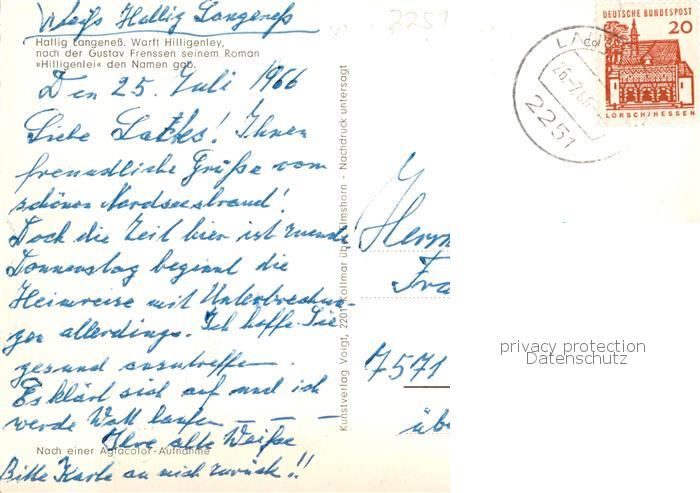 Weiß Hallig Langeneß
Hallig Langeneß. Warft Hilligenley,
nach der Gustav Frenssen seinem Roman
»Hilligenlei« den Namen gab.
Den 25. Juli 1966
Liebe! Ihnen
freundliche Grüße vom
schönen Nordseestrand!
Doch die Zeit hier ist zuende
Donnerstag beginnt die
Heimreise mit Unterbrechun-
gen allerdings. Ich hoffe Sie
gesund anzutreffen.
Es klärt sich auf und ich
werde Watt laufen — — —
Ihre alte Weiße
Nach einer Agfacolor-Aufnahme
Bitte Karte an mich zurück!!
Kunstverlag Voigt, 2201 Kollmar üb. Elmshorn - Nachdruck untersagt
2251
DEUTSCHE BUNDESPOST
20
LORSCH/HESSEN
2251
Herrn
Fra
7571
übe
privacy protection
Datenschutz